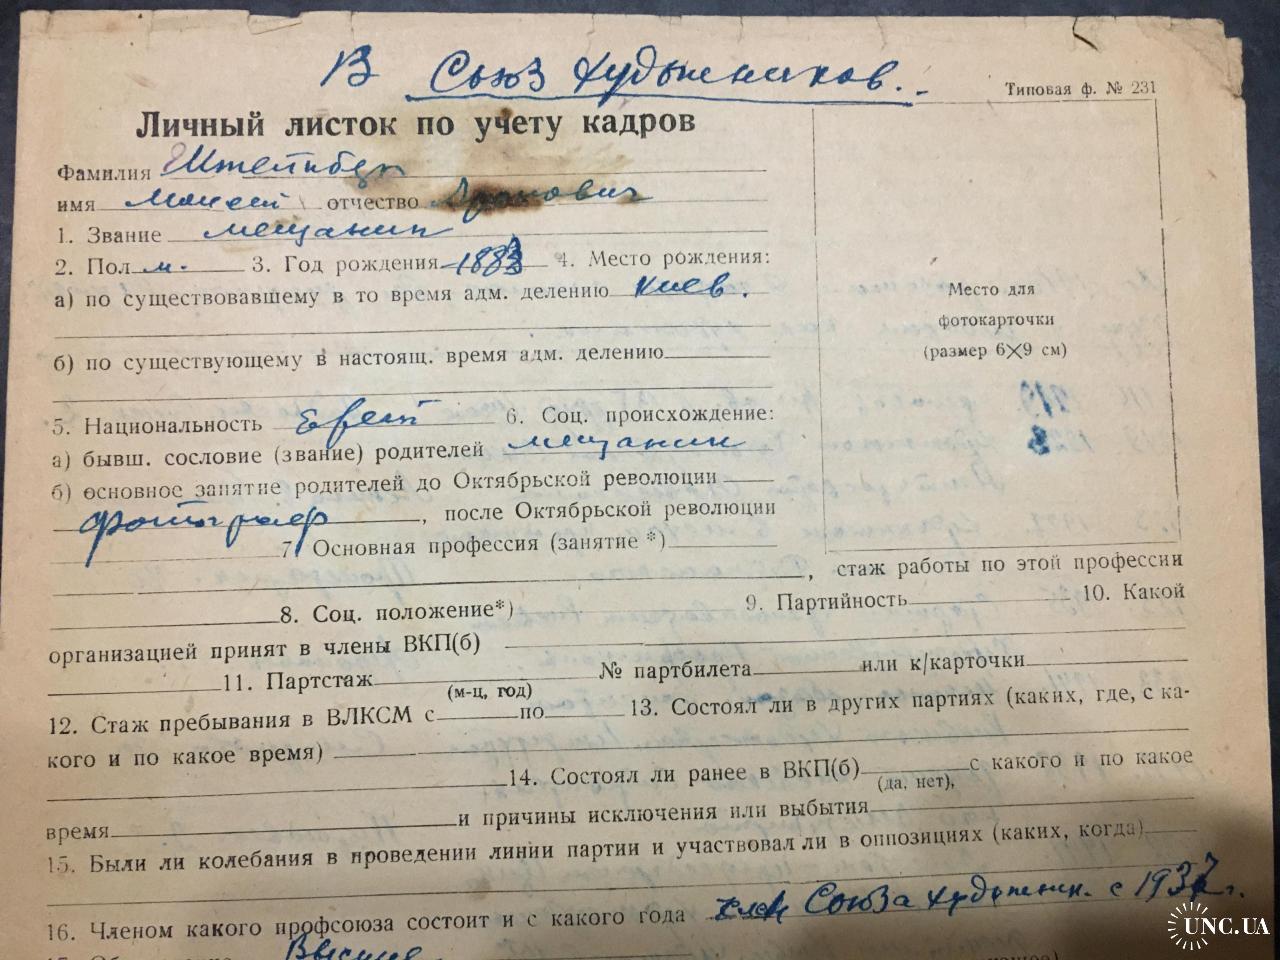 В Союз художников.
Типовая ф. № 231
Личный листок по учету кадров
Фамилия
имя Моисей отчество Аронович
1. Звание мещанин
2. Пол м. 3. Год рождения 1883 4. Место рождения:
а) по существовавшему в то время адм. делению Киев.
б) по существующему в настоящ. время адм. делению
Место для
фотокарточки
(размер 6×9 см)
5. Национальность Еврей 6. Соц. происхождение:
а) бывш. сословие (звание) родителей мещанин
б) основное занятие родителей до Октябрьской революции
фотограф, после Октябрьской революции
7. Основная профессия (занятие *)
, стаж работы по этой профессии
8. Соц. положение*) 9. Партийность 10. Какой
организацией принят в члены ВКП(б)
11. Партстаж № партбилета или к/карточки
(м-ц, год)
12. Стаж пребывания в ВЛКСМ с по 13. Состоял ли в других партиях (каких, где, с ка-
кого и по какое время)
14. Состоял ли ранее в ВКП(б) с какого и по какое
(да, нет),
время и причины исключения или выбытия
15. Были ли колебания в проведении линии партии и участвовал ли в оппозициях (каких, когда)
16. Членом какого профсоюза состоит и с какого года член Союза художник. с 1937 г.
Высшее
UNC.UA